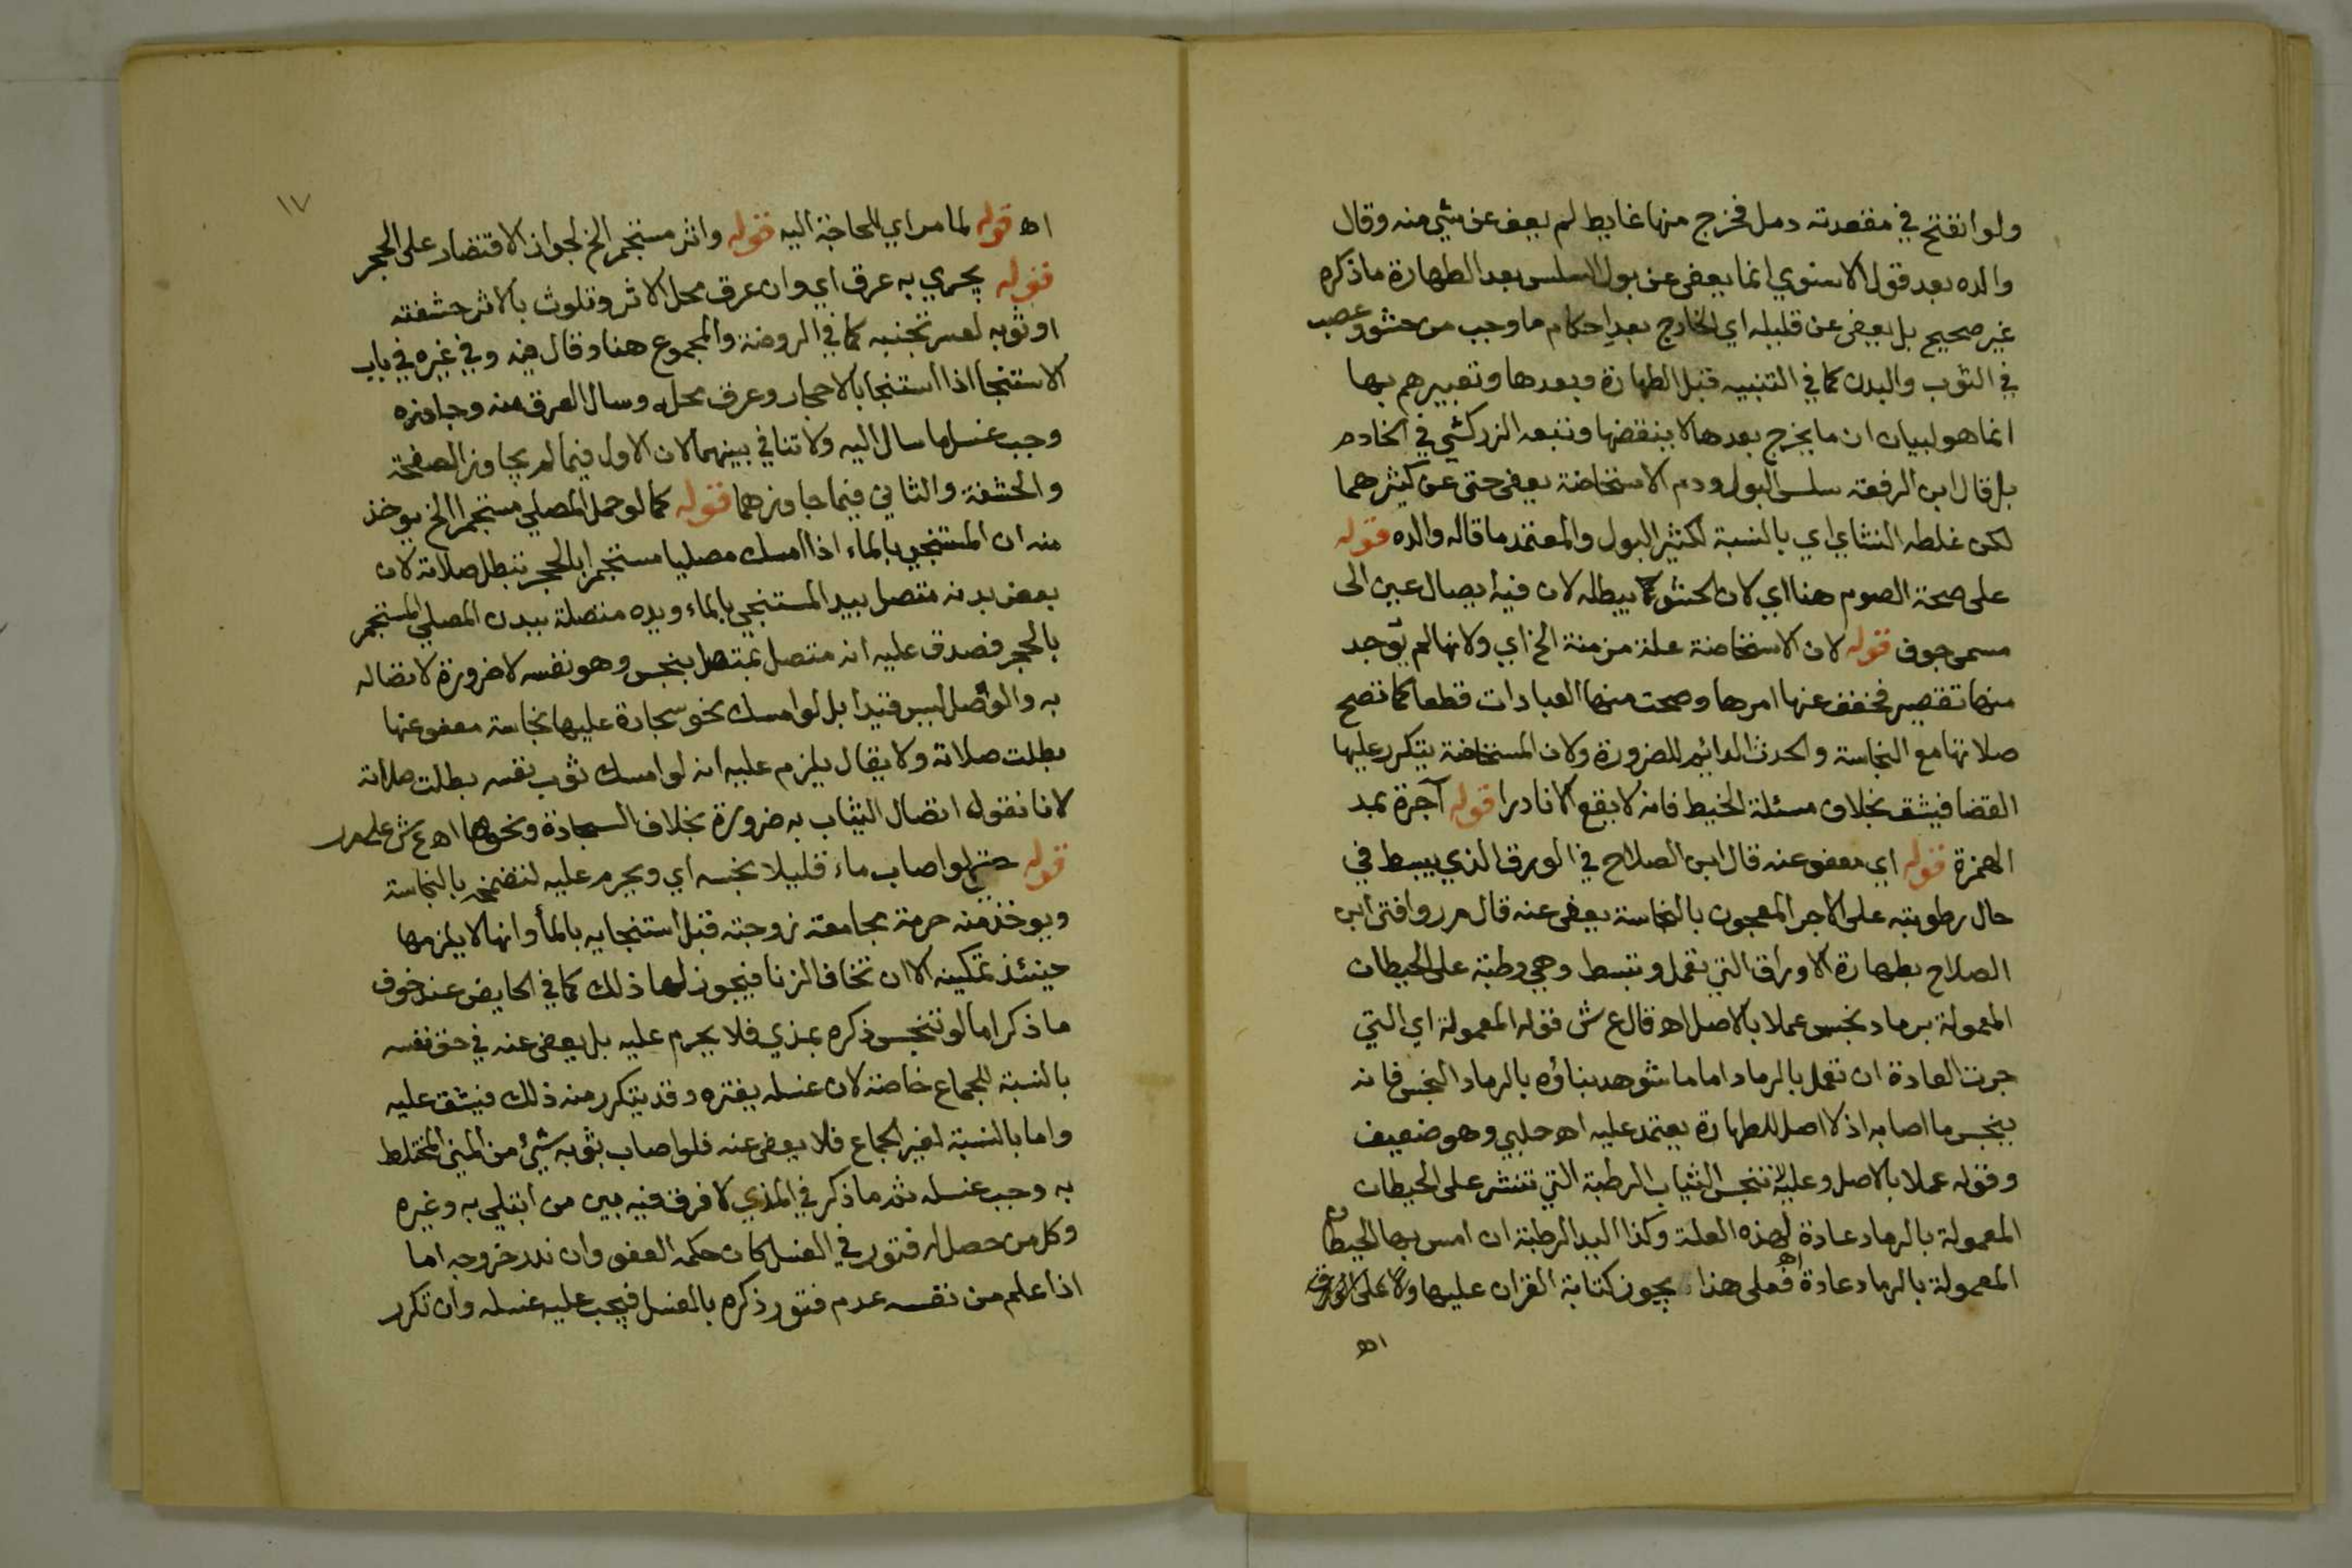 ولو انفتح في مقعدته دمل فخرج منها غايط لم يعف عن شي منه وقال
والده بعد قول الاسنوي انما يعفى عن بول السلس بعد الطهارة ما ذكره
غير صحيح بل يعفى عن قليله اي الخارج بعد احكام ما وجب من حشو وعصب
في الثوب والبدن كما في التنبيه قبل الطهارة وبعدها وتعبيرهم بها
انما هو لبيان ان ما يخرج بعدها لا ينقضها وتبعه الزركشي في الخادم
بل قال ابن الرفعه سلس البول ودم الاستحاضة يعفى حتى عن كثيرهما
لكن غلطه النشاي اي بالنسبة لكثير البول والمعتمد ما قاله والده قوله
على صحة الصوم هنا اي لان الحشو كما يبطله لان فيه ايصال عين الى
مسمى جوف قوله لان الاستحاضة علة مزمنة الخ اي ولانها لم يوجد
منها تقصير فخفف عنها امرها وصحت منها العبادات قطعا كما تصح
صلاتها مع النجاسة والحدث الدائم للضرورة ولان المستحاضة يتكرر عليها
القضا فيشق بخلاف مسئلة الخيط فانه لا يقع الا نادرا قوله آجرة بمد
الهمزة قوله اي معفو عنه قال ابن الصلاح في الورق الذي يبسط في
حال رطوبته على الاجر المعجون بالنجاسة يعفى عنه قال مر وافتى ابن
الصلاح بطهارة الاوراق التي تعمل وتبسط وهي رطبة على الحيطان
المعمولة برماد نجس عملا بالاصل اه قال ع ش قوله المعمولة اي التي
جرت العادة ان تعمل بالرماد اما ما شوهد بناؤه بالرماد النجس فانه
ينجس ما اصابه اذ لا اصل للطهارة يعتمد عليه اه حلبي وهو ضعيف
وقوله عملا بالاصل وعليه لا تنجس الثياب الرطبة التي تنشر على الحيطان
المعمولة بالرماد عادة لهذه العلة وكذا اليد الرطبة ان امس بها الحيطان
المعمولة بالرماد عادة اه فعلى هذا يجوز كتابة القران عليها ولا على الورق
اه
١٧
اه قوله لما مر اي للحاجة اليه قوله واثر مستجمر الخ لجواز الاقتصار على الحجر
قوله يجري به عرق اي وان عرق محل الاثر وتلوث بالاثر حشفته
او ثوبه لعسر تجنبه كما في الروضة والمجموع هنا وقال فيه وفي غيره في باب
الاستنجا اذا استنجا بالاحجار وعرق محله وسال العرق منه وجاوزه
وجب غسل ما سال اليه ولا تنافي بينهما لان الاول فيما لم يجاوز الصفحة
والحشفة والثاني فيما جاوزهما قوله كما لو حمل المصلي مستجمرا الخ يوخذ
منه ان المستنجي بالماء اذا امسك مصليا مستجمرا بالحجر تبطل صلاته لان
بعض بدنه متصل بيد المستنجي بالماء ويده متصلة ببدن المصلي المستجمر
بالحجر فصدق عليه انه متصل بمتصل بنجس وهو نفسه لا ضرورة لاتصاله
به والتوصل ليس قيدا بل لو امسك نحو سجادة عليها نجاسة معفو عنها
بطلت صلاته ولا يقال يلزم عليه انه لو امسك ثوب نفسه بطلت صلاته
لانا نقول اتصال الثياب به ضرورة بخلاف السجادة ونحوها اه ع ش على مر
قوله حتى لو اصاب ماء قليلا نجسه اي ويحرم عليه لتضمخه بالنجاسة
ويوخذ منه حرمة مجامعة زوجته قبل استنجايه بالماء وانها لا يلزمها
حينئذ تمكينه الا ان تخاف الزنا فيجوز لها ذلك كما في الحايض عند خوف
ما ذكر اما لو تنجس ذكره بمذي فلا يحرم عليه بل يعفى عنه في حق نفسه
بالنسبة للجماع خاصة لان غسله يفتره وقد يتكرر منه ذلك فيشق عليه
واما بالنسبة لغير الجماع فلا يعفى عنه فلو اصاب ثوبه شيئ من المني المختلط
به وجب غسله ثم ما ذكر في المذي لا فرق فيه بين من ابتلي به وغيره
وكل من حصل له فتور في الغسل كان حكمه العفو وان ندر خروجه اما
اذا علم من نفسه عدم فتور ذكره بالغسل فيجب عليه غسله وان تكرر